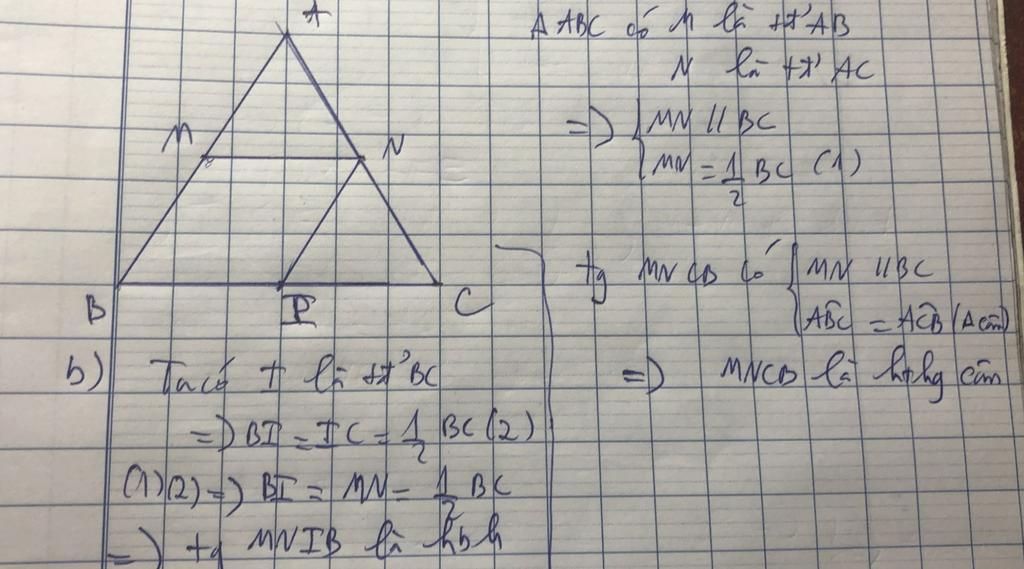 A
M
N
B
I
C
Δ ABC có M là tđ' AB
N là tđ' AC
=> { MN // BC
MN = 1/2 BC (1)
tg MNCB có { MN // BC
ABC = ACB (Δ cân)
=> MNCB là hthg cân
b) Ta có I là tđ' BC
=> BI = IC = 1/2 BC (2)
(1)(2) => BI = MN = 1/2 BC
=> tg MNIB là hbh